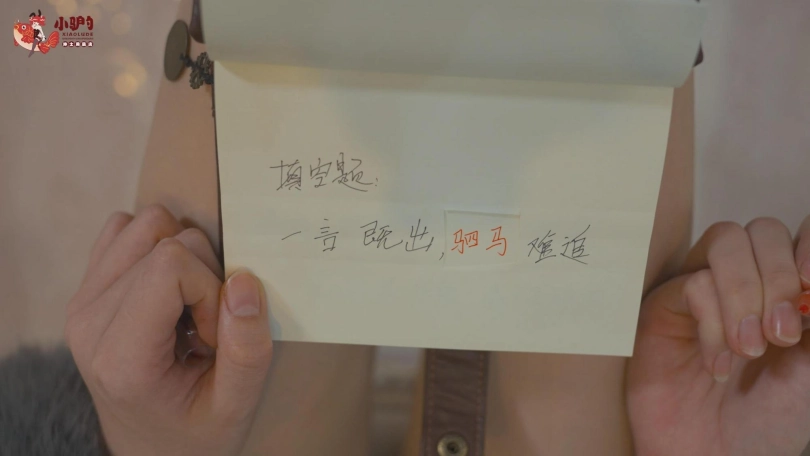 小驴肉
XIAOLUDE
填空题:
一言既出,驷马难追